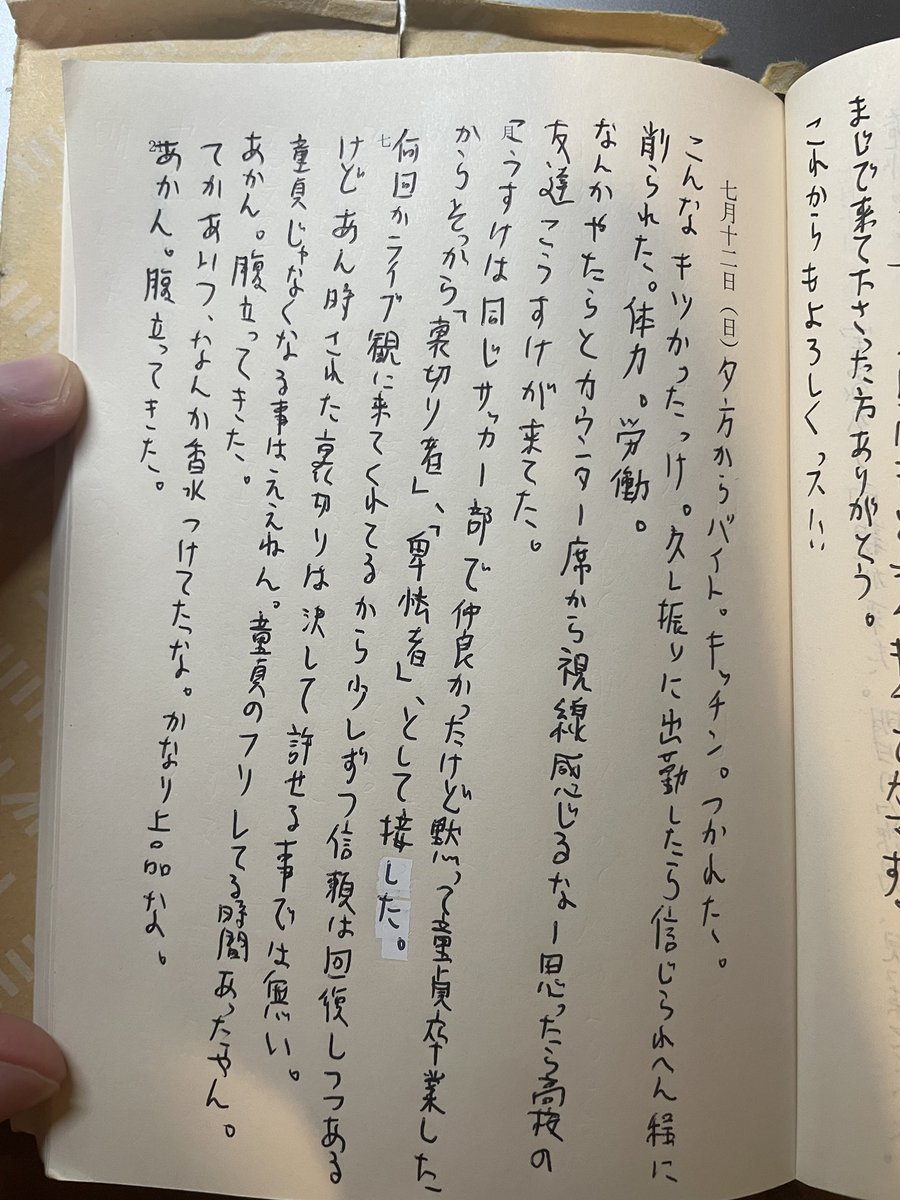 まじで来て下さった方ありがとう。
これからもよろしくっス!!
七月十二日(日)夕方からバイト。キッチン。つかれた。
こんなキツかったっけ。久し振りに出勤したら信じられへん程に
削られた。体力。労働。
なんかやたらとカウンター席から視線感じるなー思ったら高校の
友達こうすけが来てた。
こうすけは同じサッカー部で仲良かったけど黙って童貞卒業した
からそっから「裏切り者」、「卑怯者」、として接した。
何回かライブ観に来てくれてるから少しずつ信頼は回復しつつある
けどあん時された裏切りは決して許せる事では無い。
童貞じゃなくなる事はええねん。童貞のフリしてる時間あったやん。
あかん。腹立ってきた。
てかあいつ、なんか香水つけてたな。かなり上品なよ。
あかん。腹立ってきた。
月
七